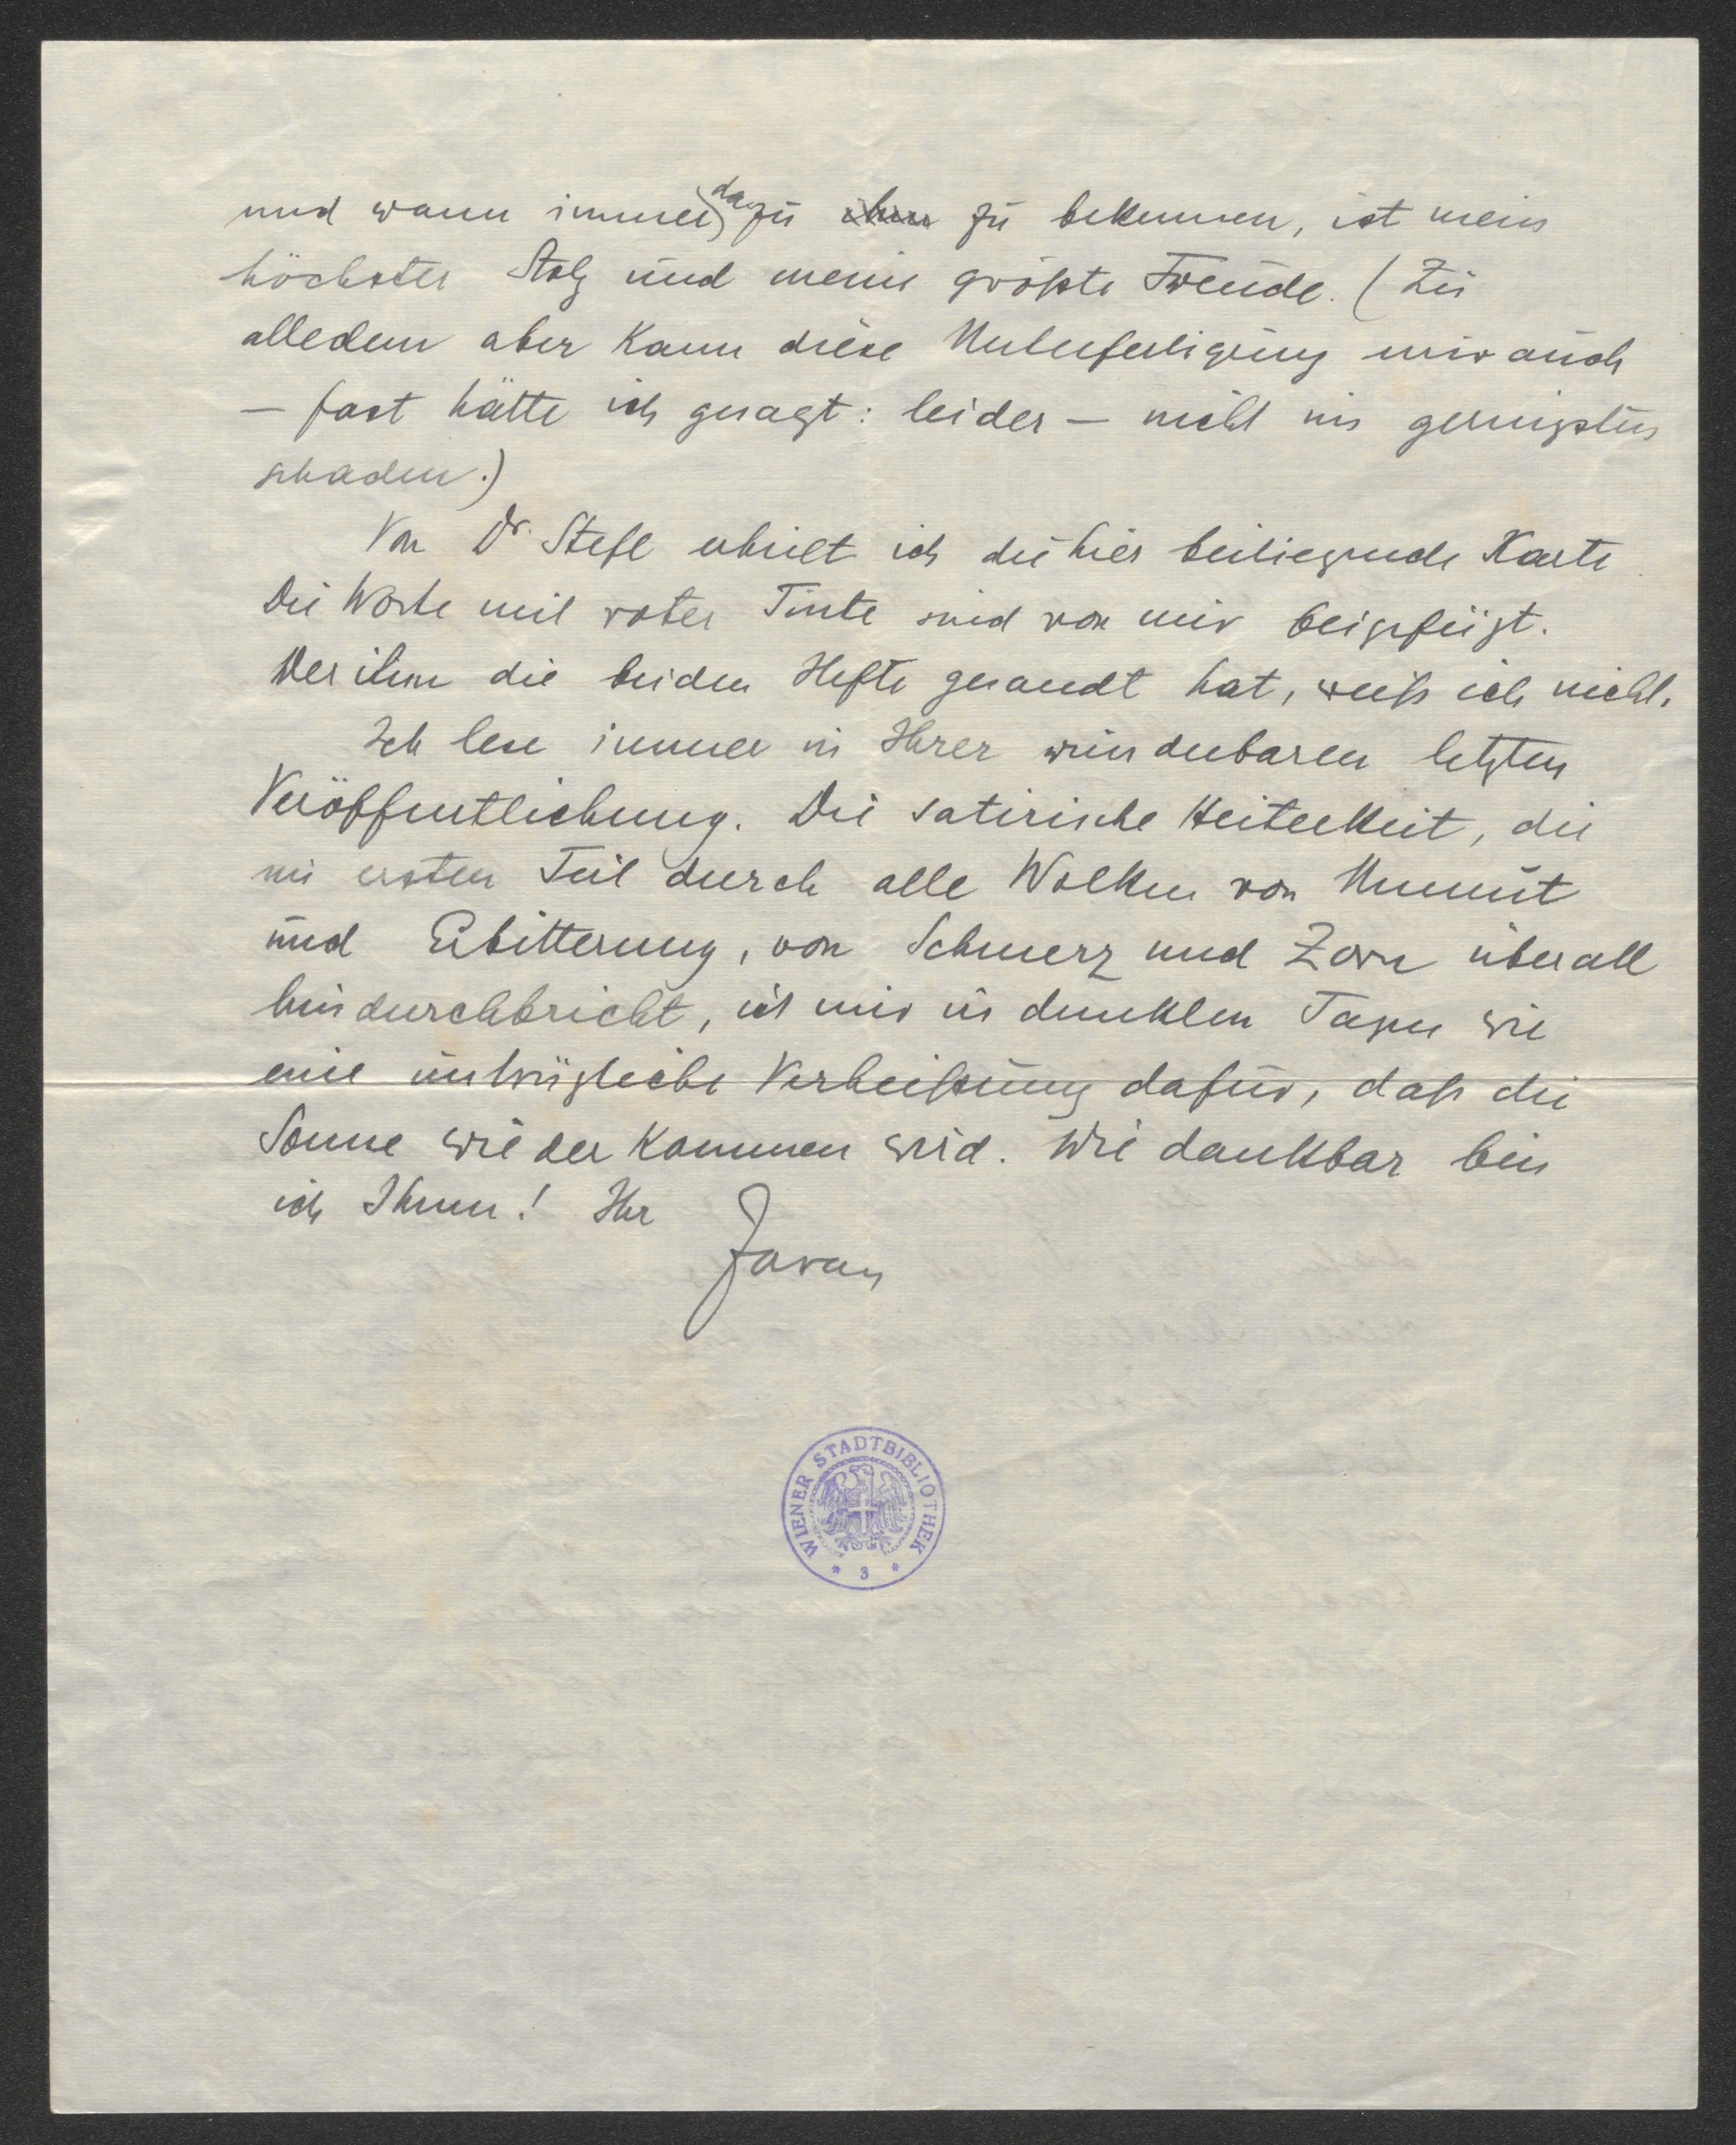 und wann immer dazu ihm zu bekennen, ist mein
höchster Stolz und meine größte Freude. (Zu
alledem aber kann diese Unterfertigung mir auch
— fast hätte ich gesagt: leider — nicht im geringsten
schaden.)
Von Dr. Stefl erhielt ich die hier beiliegende Karte
Die Worte mit roter Tinte sind von mir beigefügt.
Wer ihm die beiden Hefte gesandt hat, weiß ich nicht.
Ich lese immer in Ihrer wunderbaren letzten
Veröffentlichung. Die satirische Heiterkeit, die
im ersten Teil durch alle Wolken von Unmut
und Erbitterung, von Schmerz und Zorn überall
hindurchbricht, ist mir in dunklen Tagen wie
eine untrügliche Verheißung dafür, daß die
Sonne wieder kommen wird. Wie dankbar bin
ich Ihnen! Ihr
Jaray
WIENER STADTBIBLIOTHEK
* 3 *